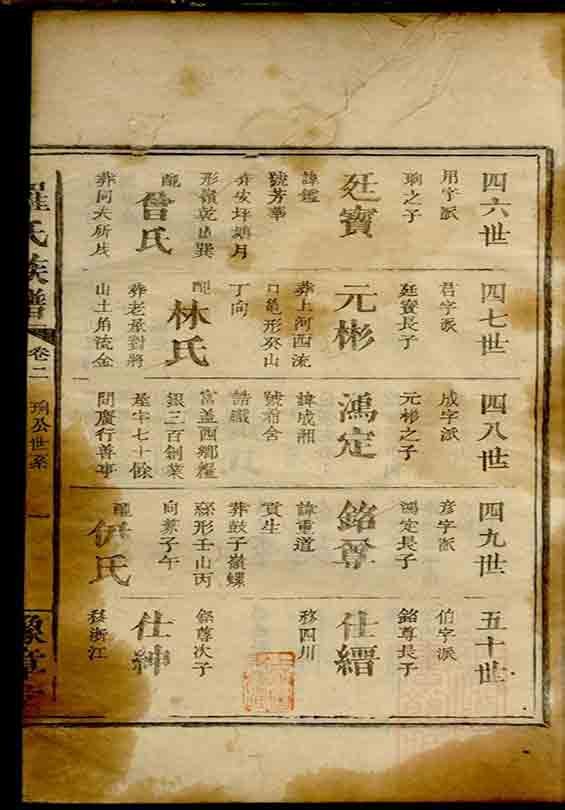 四六世
用字派
珣之子
廷寶
諱鑑
號芳華
葬安坪塘月
形嶺乾山巽
配
曾氏
四七世
君字派
廷寶長子
元彬
葬上河西流
口龜形癸山
丁向
配
林氏
葬老承對將
山土角流金
四八世
成字派
元彬之子
鴻定
諱成湘
號希舍
誥職
富蓋西鄉糧
銀三百創業
產宇七十餘
間廣行善事
四九世
彥字派
鴻定長子
銘尊
諱重道
貢生
葬鼓子嶺螺
形壬山丙
向兼子午
配
伊氏
五十世
伯字派
銘尊長子
仕縉
移四川
銘尊次子
仕紳
移浙江
羅氏族譜
卷二
珣公世系
一
豫章堂